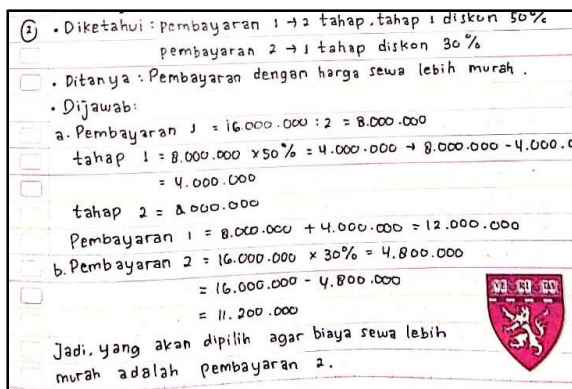 ② • Diketahui : pembayaran 1 → 2 tahap, tahap 1 diskon 50%
pembayaran 2 → 1 tahap diskon 30%
• Ditanya : Pembayaran dengan harga sewa lebih murah.
• Dijawab:
a. Pembayaran 1 = 16.000.000 : 2 = 8.000.000
tahap 1 = 8.000.000 x 50% = 4.000.000 → 8.000.000 - 4.000.0
= 4.000.000
tahap 2 = 8.000.000
Pembayaran 1 = 8.000.000 + 4.000.000 = 12.000.000
b. Pembayaran 2 = 16.000.000 x 30% = 4.800.000
= 16.000.000 - 4.800.000
= 11.200.000
Jadi, yang akan dipilih agar biaya sewa lebih
murah adalah pembayaran 2.